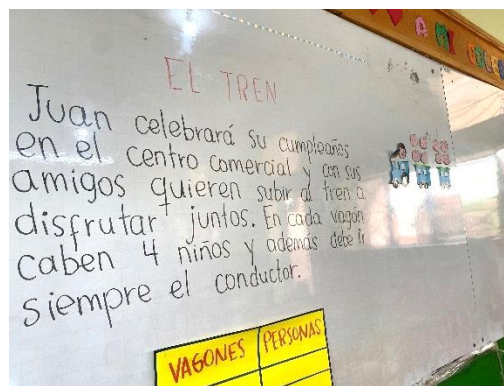 EL TREN
Juan celebrará su cumpleaños
en el centro comercial y con sus
amigos quieren subir al tren a
disfrutar juntos. En cada vagón
caben 4 niños y además debe ir
siempre el conductor.
VAGONES PERSONAS